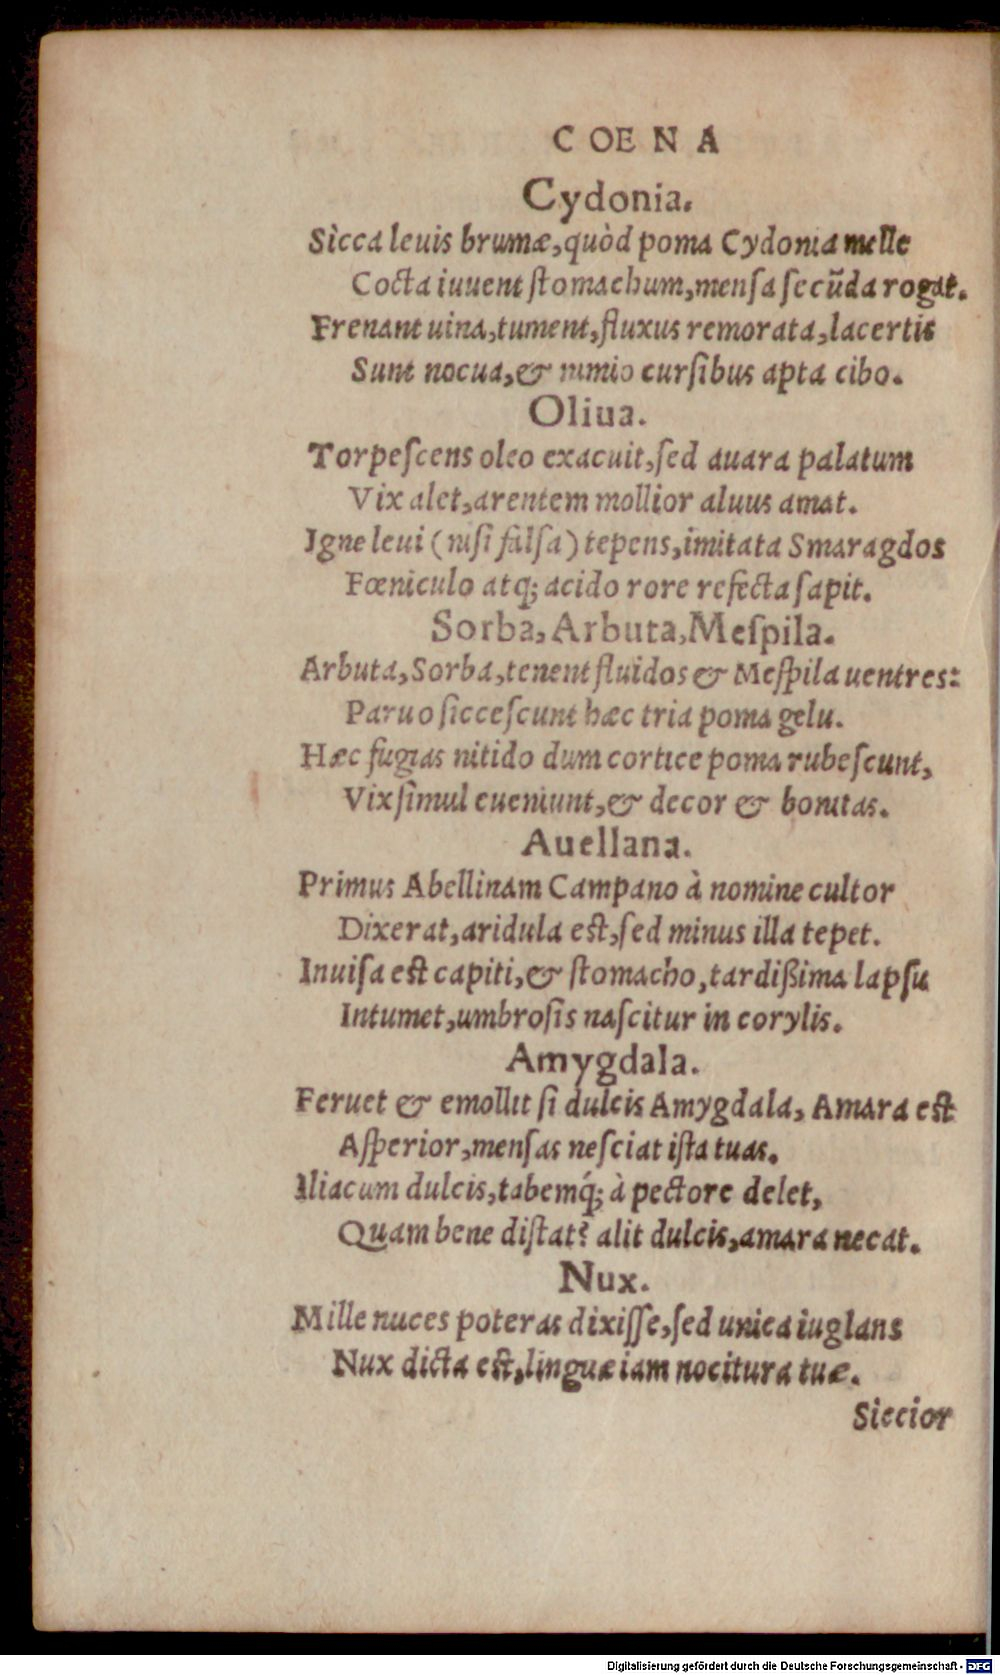 COENA
Cydonia.
Sicca leuis brumæ, quòd poma Cydonia melle
Cocta iuuent ſtomachum, menſa ſecũda rogat.
Frenant uina, tument, fluxus remorata, lacertis
Sunt nocua, & nimio curſibus apta cibo.
Oliua.
Torpeſcens oleo exacuit, ſed auara palatum
Vix alet, arentem mollior aluus amat.
Igne leui (niſi falſa) tepens, imitata Smaragdos
Fœniculo atq; acido rore refecta ſapit.
Sorba, Arbuta, Meſpila.
Arbuta, Sorba, tenent fluidos & Meſpila uentres:
Paruo ſicceſcunt hæc tria poma gelu.
Hæc fugias nitido dum cortice poma rubeſcunt,
Vix ſimul eueniunt, & decor & bonitas.
Auellana.
Primus Abellinam Campano à nomine cultor
Dixerat, aridula eſt, ſed minus illa tepet.
Inuiſa eſt capiti, & ſtomacho, tardißima lapſu
Intumet, umbroſis naſcitur in corylis.
Amygdala.
Feruet & emollit ſi dulcis Amygdala, Amara eſt
Aſperior, menſas neſciat iſta tuas.
Iliacum dulcis, tabemq́; à pectore delet,
Quam bene diſtat? alit dulcis, amara necat.
Nux.
Mille nuces poteras dixiſſe, ſed unica iuglans
Nux dicta eſt, linguæ iam nocitura tuæ.
Siccior
Digitalisierung gefördert durch die Deutsche Forschungsgemeinschaft - DFG